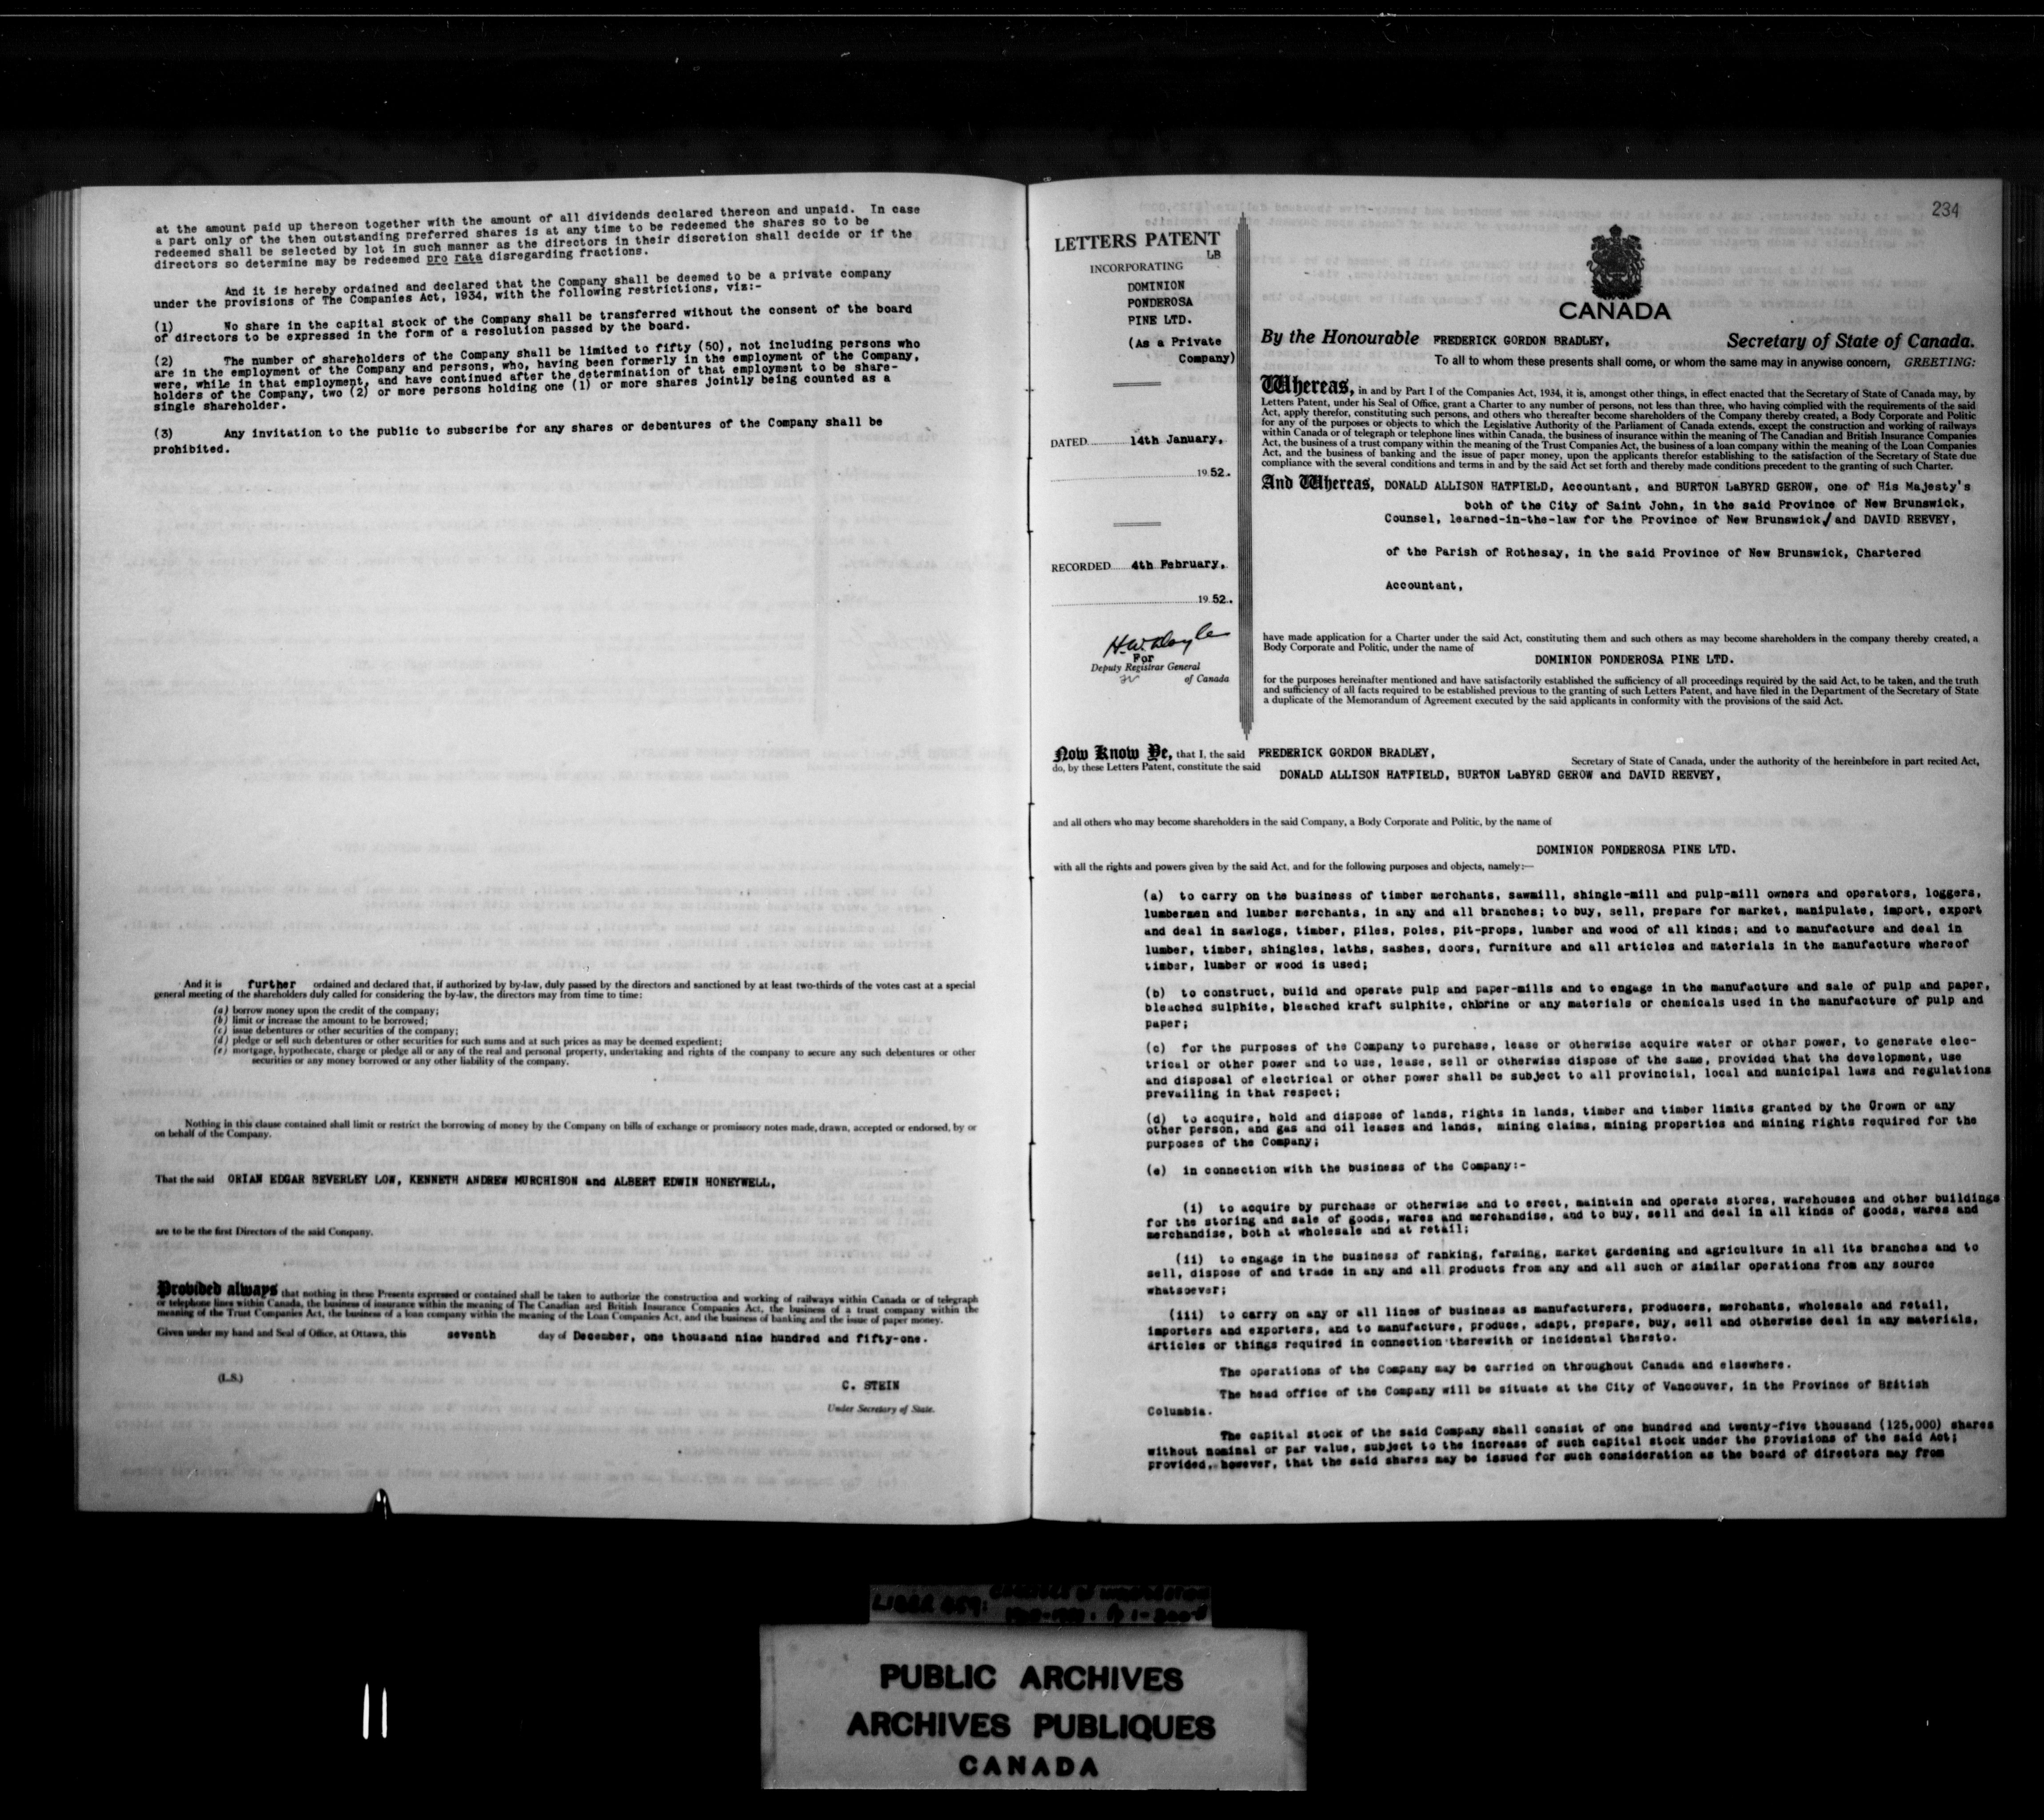 at the amount paid up thereon together with the amount of all dividends declared thereon and unpaid. In case
a part only of the then outstanding preferred shares is at any time to be redeemed the shares so to be
redeemed shall be selected by lot in such manner as the directors in their discretion shall decide or if the
directors so determine may be redeemed pro rata disregarding fractions.
And it is hereby ordained and declared that the Company shall be deemed to be a private company
under the provisions of The Companies Act, 1934, with the following restrictions, viz:-
(1) No share in the capital stock of the Company shall be transferred without the consent of the board
of directors to be expressed in the form of a resolution passed by the board.
(2) The number of shareholders of the Company shall be limited to fifty (50), not including persons who
are in the employment of the Company and persons, who, having been formerly in the employment of the Company,
were, while in that employment, and have continued after the determination of that employment to be share-
holders of the Company, two (2) or more persons holding one (1) or more shares jointly being counted as a
single shareholder.
(3) Any invitation to the public to subscribe for any shares or debentures of the Company shall be
prohibited.
And it is further ordained and declared that, if authorized by by-law, duly passed by the directors and sanctioned by at least two-thirds of the votes cast at a special
general meeting of the shareholders duly called for considering the by-law, the directors may from time to time:
(a) borrow money upon the credit of the company;
(b) limit or increase the amount to be borrowed;
(c) issue debentures or other securities of the company;
(d) pledge or sell such debentures or other securities for such sums and at such prices as may be deemed expedient;
(e) mortgage, hypothecate, charge or pledge all or any of the real and personal property, undertaking and rights of the company to secure any such debentures or other
securities or any money borrowed or any other liability of the company.
Nothing in this clause contained shall limit or restrict the borrowing of money by the Company on bills of exchange or promissory notes made, drawn, accepted or endorsed, by or
on behalf of the Company.
That the said ORIAN EDGAR BEVERLEY LOW, KENNETH ANDREW MURCHISON and ALBERT EDWIN HONEYWELL,
are to be the first Directors of the said Company.
Provided always that nothing in these Presents expressed or contained shall be taken to authorize the construction and working of railways within Canada or of telegraph
or telephone lines within Canada, the business of insurance within the meaning of The Canadian and British Insurance Companies Act, the business of a trust company within the
meaning of the Trust Companies Act, the business of a loan company within the meaning of the Loan Companies Act, and the business of banking and the issue of paper money.
Given under my hand and Seal of Office, at Ottawa, this seventh day of December, one thousand nine hundred and fifty-one.
(L.S.)
C. STEIN
Under Secretary of State.
234
LETTERS PATENT
LB
INCORPORATING
DOMINION
PONDEROSA
PINE LTD.
(As a Private
Company)
DATED 14th January,
1952.
RECORDED 4th February,
1952.
H.W. Doyle
For
Deputy Registrar General
of Canada
CANADA
By the Honourable FREDERICK GORDON BRADLEY, Secretary of State of Canada.
To all to whom these presents shall come, or whom the same may in anywise concern, GREETING:
Whereas, in and by Part I of the Companies Act, 1934, it is, amongst other things, in effect enacted that the Secretary of State of Canada may, by
Letters Patent, under his Seal of Office, grant a Charter to any number of persons, not less than three, who having complied with the requirements of the said
Act, apply therefor, constituting such persons, and others who thereafter become shareholders of the Company thereby created, a Body Corporate and Politic
for any of the purposes or objects to which the Legislative Authority of the Parliament of Canada extends, except the construction and working of railways
within Canada or of telegraph or telephone lines within Canada, the business of insurance within the meaning of The Canadian and British Insurance Companies
Act, the business of a trust company within the meaning of the Trust Companies Act, the business of a loan company within the meaning of the Loan Companies
Act, and the business of banking and the issue of paper money, upon the applicants therefor establishing to the satisfaction of the Secretary of State due
compliance with the several conditions and terms in and by the said Act set forth and thereby made conditions precedent to the granting of such Charter.
And Whereas, DONALD ALLISON HATFIELD, Accountant, and BURTON LaBYRD GEROW, one of His Majesty's
both of the City of Saint John, in the said Province of New Brunswick,
Counsel, learned-in-the-law for the Province of New Brunswick,/and DAVID REEVEY,
of the Parish of Rothesay, in the said Province of New Brunswick, Chartered
Accountant,
have made application for a Charter under the said Act, constituting them and such others as may become shareholders in the company thereby created, a
Body Corporate and Politic, under the name of
DOMINION PONDEROSA PINE LTD.
for the purposes hereinafter mentioned and have satisfactorily established the sufficiency of all proceedings required by the said Act, to be taken, and the truth
and sufficiency of all facts required to be established previous to the granting of such Letters Patent, and have filed in the Department of the Secretary of State
a duplicate of the Memorandum of Agreement executed by the said applicants in conformity with the provisions of the said Act.
Now Know Ye, that I, the said FREDERICK GORDON BRADLEY,
Secretary of State of Canada, under the authority of the hereinbefore in part recited Act,
do, by these Letters Patent, constitute the said
DONALD ALLISON HATFIELD, BURTON LaBYRD GEROW and DAVID REEVEY,
and all others who may become shareholders in the said Company, a Body Corporate and Politic, by the name of
DOMINION PONDEROSA PINE LTD.
with all the rights and powers given by the said Act, and for the following purposes and objects, namely:—
(a) to carry on the business of timber merchants, sawmill, shingle-mill and pulp-mill owners and operators, loggers,
lumbermen and lumber merchants, in any and all branches; to buy, sell, prepare for market, manipulate, import, export
and deal in sawlogs, timber, piles, poles, pit-props, lumber and wood of all kinds; and to manufacture and deal in
lumber, timber, shingles, laths, sashes, doors, furniture and all articles and materials in the manufacture whereof
timber, lumber or wood is used;
(b) to construct, build and operate pulp and paper-mills and to engage in the manufacture and sale of pulp and paper,
bleached sulphite, bleached kraft sulphite, chlorine or any materials or chemicals used in the manufacture of pulp and
paper;
(c) for the purposes of the Company to purchase, lease or otherwise acquire water or other power, to generate elec-
trical or other power and to use, lease, sell or otherwise dispose of the same, provided that the development, use
and disposal of electrical or other power shall be subject to all provincial, local and municipal laws and regulations
prevailing in that respect;
(d) to acquire, hold and dispose of lands, rights in lands, timber and timber limits granted by the Crown or any
other person, and gas and oil leases and lands, mining claims, mining properties and mining rights required for the
purposes of the Company;
(e) in connection with the business of the Company:-
(i) to acquire by purchase or otherwise and to erect, maintain and operate stores, warehouses and other buildings
for the storing and sale of goods, wares and merchandise, and to buy, sell and deal in all kinds of goods, wares and
merchandise, both at wholesale and at retail;
(ii) to engage in the business of ranking, farming, market gardening and agriculture in all its branches and to
sell, dispose of and trade in any and all products from any and all such or similar operations from any source
whatsoever;
(iii) to carry on any or all lines of business as manufacturers, producers, merchants, wholesale and retail,
importers and exporters, and to manufacture, produce, adapt, prepare, buy, sell and otherwise deal in any materials,
articles or things required in connection therewith or incidental thereto.
The operations of the Company may be carried on throughout Canada and elsewhere.
The head office of the Company will be situate at the City of Vancouver, in the Province of British
Columbia.
The capital stock of the said Company shall consist of one hundred and twenty-five thousand (125,000) shares
without nominal or par value, subject to the increase of such capital stock under the provisions of the said Act;
provided, however, that the said shares may be issued for such consideration as the board of directors may from
LIBER 459:
PUBLIC ARCHIVES
ARCHIVES PUBLIQUES
CANADA
11